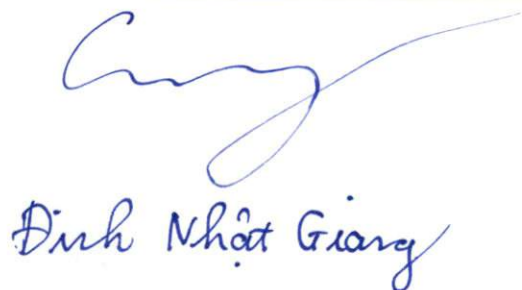 Đinh Nhật Giang